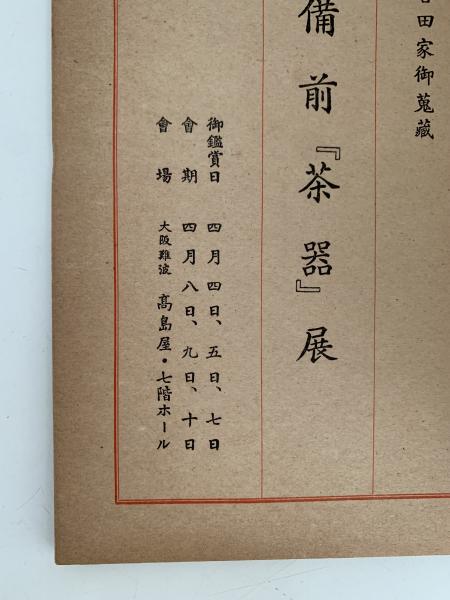 田家御蒐藏
備前『茶器』展
御鑑賞日 四月四日、五日、七日
會期 四月八日、九日、十日
會場 大阪難波 髙島屋・七階ホール